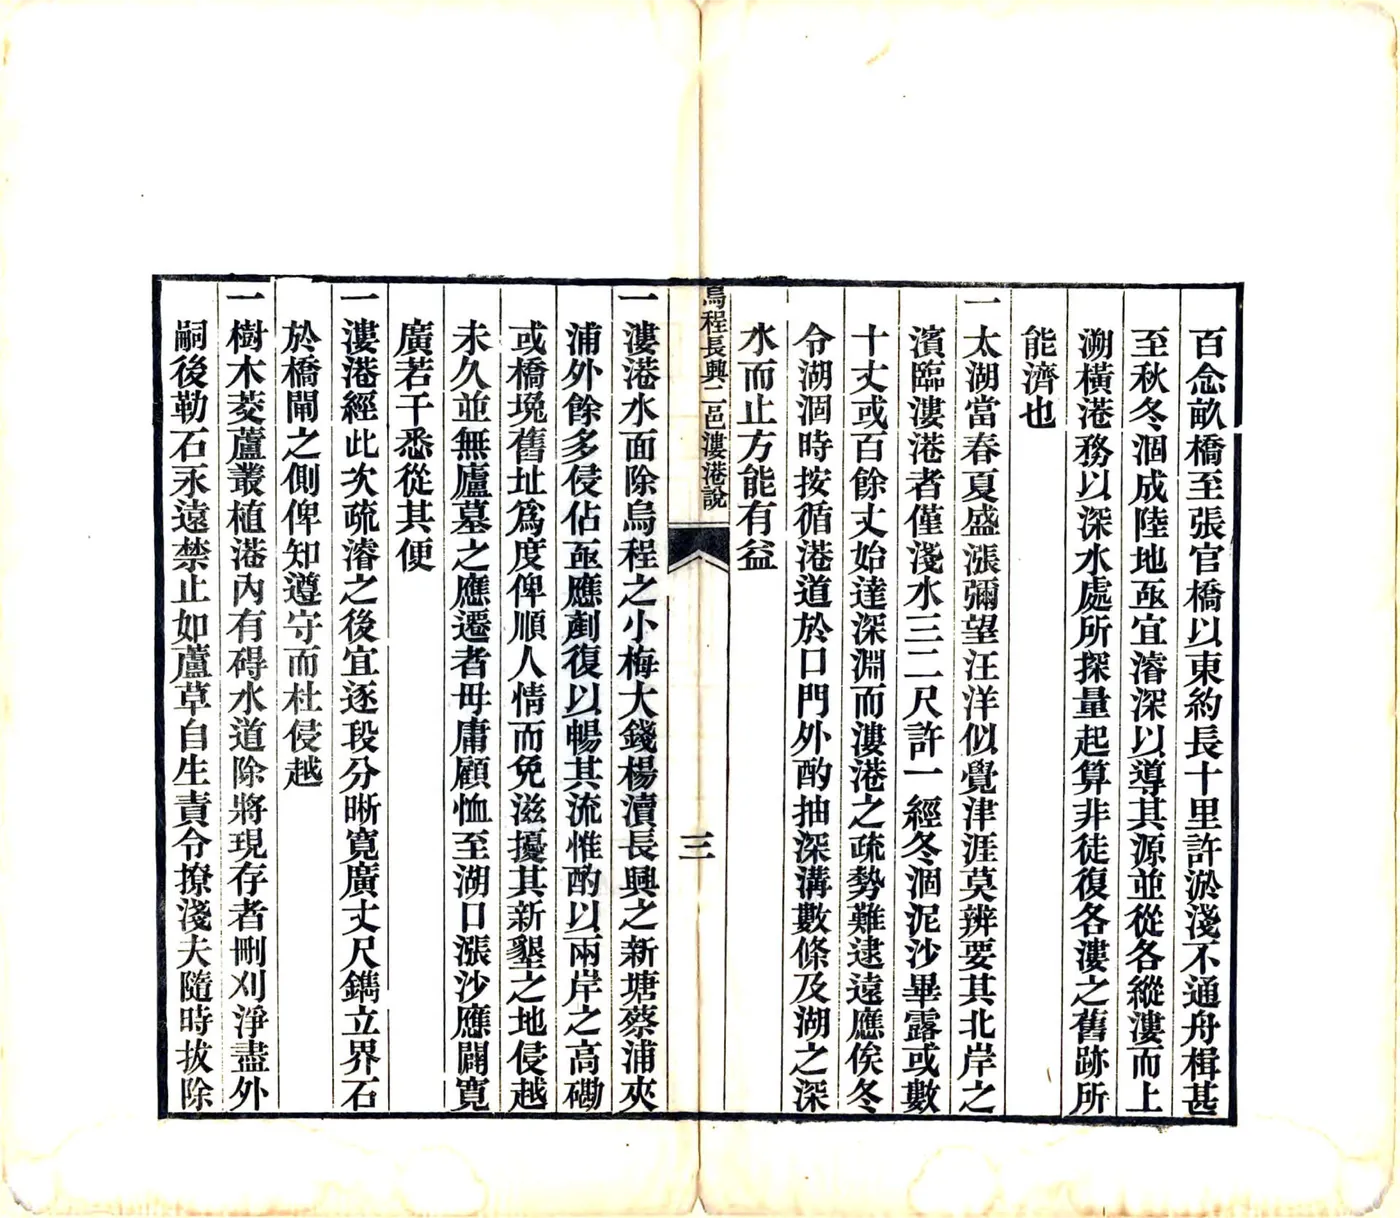 百念畝橋至張官橋以東約長十里許淤淺不通舟楫甚
至秋冬涸成陸地亟宜濬深以導其源並從各縱漊而上
溯橫港務以深水處所探量起算非徒復各漊之舊跡所
能濟也
一太湖當春夏盛漲彌望汪洋似覺津涯莫辨要其北岸之
濱臨漊港者僅淺水三二尺許一經冬涸泥沙畢露或數
十丈或百餘丈始達深淵而漊港之疏勢難逮遠應俟冬
令湖涸時按循港道於口門外酌抽深溝數條及湖之深
水而止方能有益
烏程長興二邑漊港說
三
一漊港水面除烏程之小梅大錢楊瀆長興之新塘蔡浦夾
浦外餘多侵佔亟應剷復以暢其流惟酌以兩岸之高磡
或橋堍舊址爲度俾順人情而免滋擾其新墾之地侵越
未久並無廬墓之應遷者毋庸顧恤至湖口漲沙應闢寬
廣若干悉從其便
一漊港經此次疏濬之後宜逐段分晰寬廣丈尺鐫立界石
於橋閘之側俾知遵守而杜侵越
一樹木茭蘆叢植港內有碍水道除將現存者刪刈淨盡外
嗣後勒石永遠禁止如蘆草自生責令撩淺夫隨時拔除